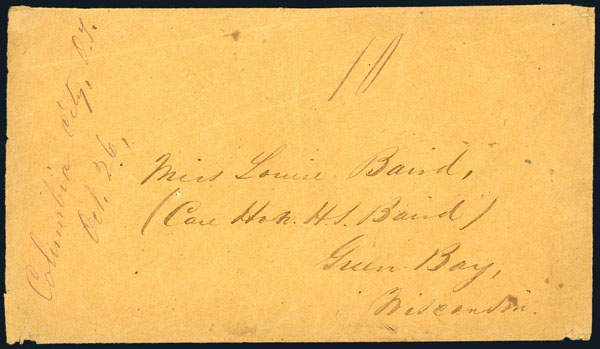 Columbia City, O.T.
Oct. 26,
10
Miss Louise Baird,
(Care Hon. H.S. Baird)
Green Bay,
Wisconsin.